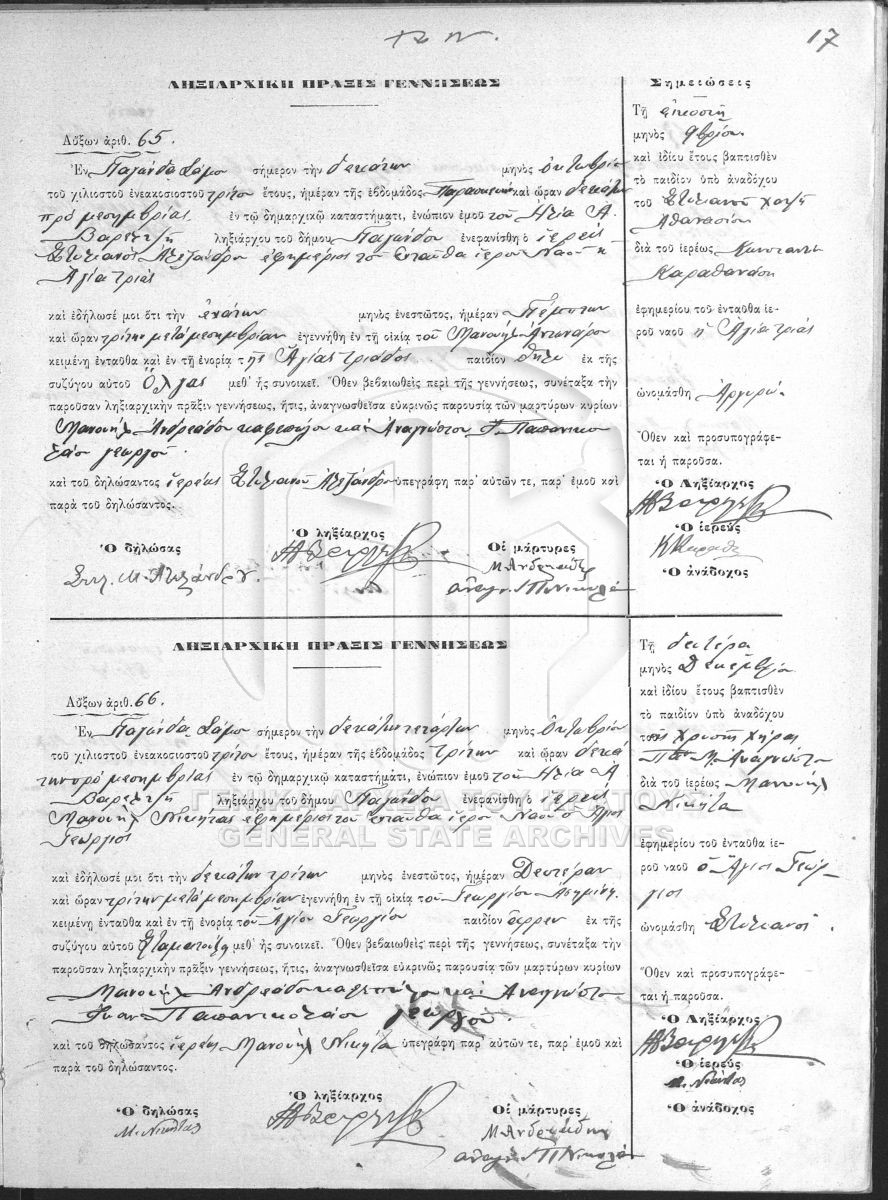 17
ΛΗΞΙΑΡΧΙΚΗ ΠΡΑΞΙΣ ΓΕΝΝΗΣΕΩΣ
Αὔξων ἀριθ. 65.
Ἐν Παγώνδα Σάμου σήμερον τὴν δεκάτην μηνὸς Ὀκτωβρίου
τοῦ χιλιοστοῦ ἐνεακοσιοστοῦ τρίτου ἔτους, ἡμέραν τῆς ἑβδομάδος Παρασκευὴν καὶ ὥραν δεκάτην
πρὸ μεσημβρίας ἐν τῷ δημαρχικῷ καταστήματι, ἐνώπιον ἐμοῦ τοῦ Ἠλία Α.
Βαρελτζῆ ληξιάρχου τοῦ δήμου Παγώνδου ἐνεφανίσθη ὁ ἱερεὺς
Στυλιανὸς Ἀλεξάνδρου ἐφημέριος τοῦ ἐνταῦθα ἱεροῦ Ναοῦ ἡ
Ἁγία τριάς
καὶ ἐδήλωσέ μοι ὅτι τὴν ἐνάτην μηνὸς ἐνεστῶτος, ἡμέραν Πέμπτην
καὶ ὥραν τρίτην μετὰ μεσημβρίαν ἐγεννήθη ἐν τῇ οἰκίᾳ τοῦ Μανουὴλ Ἀντωνάρου
κειμένῃ ἐνταῦθα καὶ ἐν τῇ ἐνορίᾳ τῆς Ἁγίας τριάδος παιδίον θῆλυ ἐκ τῆς
συζύγου αὐτοῦ Ὄλγας μεθ' ἧς συνοικεῖ. Ὅθεν βεβαιωθεὶς περὶ τῆς γεννήσεως, συνέταξα τὴν
παροῦσαν ληξιαρχικὴν πρᾶξιν γεννήσεως, ἥτις, ἀναγνωσθεῖσα εὐκρινῶς παρουσίᾳ τῶν μαρτύρων κυρίων
Μανουὴλ Ἀνδρεάδου καφεπώλου καὶ Ἀναγνώστου Ι. Παπανικο
λάου γεωργοῦ
καὶ τοῦ δηλώσαντος ἱερέως Στυλιανοῦ Ἀλεξάνδρου ὑπεγράφη παρ' αὐτῶν τε, παρ' ἐμοῦ καὶ
παρὰ τοῦ δηλώσαντος.
Ὁ δηλώσας
Ὁ ληξίαρχος
Οἱ μάρτυρες
Στυλ. Μ. Ἀλεξάνδρου
Μ Ἀνδρεάδης
ἀναγν. Ι Π Νικολά
Σημειώσεις
Τῇ εἰκοστῇ
μηνὸς 9βρίου
καὶ ἰδίου ἔτους βαπτισθὲν
τὸ παιδίον ὑπὸ ἀναδόχου
τοῦ Στυλιανοῦ χατζῆ
Ἀθανασίου
διὰ τοῦ ἱερέως Κωνσταντ.
Καραθανάση
ἐφημερίου τοῦ ἐνταῦθα ἱε-
ροῦ ναοῦ ἡ Ἁγία τριάς
ὠνομάσθη Ἀργυρώ
Ὅθεν καὶ προσυπογράφε-
ται ἡ παροῦσα.
Ὁ Ληξίαρχος
Ὁ ἱερεὺς
Ὁ ἀνάδοχος
ΛΗΞΙΑΡΧΙΚΗ ΠΡΑΞΙΣ ΓΕΝΝΗΣΕΩΣ
Αὔξων ἀριθ. 66.
Ἐν Παγώνδα Σάμου σήμερον τὴν δεκάτην τετάρτην μηνὸς Ὀκτωβρίου
τοῦ χιλιοστοῦ ἐνεακοσιοστοῦ τρίτου ἔτους, ἡμέραν τῆς ἑβδομάδος τρίτην καὶ ὥραν δεκά
την πρὸ μεσημβρίας ἐν τῷ δημαρχικῷ καταστήματι, ἐνώπιον ἐμοῦ τοῦ Ἠλία Α
Βαρελτζῆ ληξιάρχου τοῦ δήμου Παγώνδου ἐνεφανίσθη ὁ ἱερεὺς
Μανουὴλ Νικήτας ἐφημέριος τοῦ ἐνταῦθα ἱεροῦ Ναοῦ ὁ Ἅγιος
Γεώργιος
καὶ ἐδήλωσέ μοι ὅτι τὴν δεκάτην τρίτην μηνὸς ἐνεστῶτος, ἡμέραν Δευτέραν
καὶ ὥραν τρίτην μετὰ μεσημβρίαν ἐγεννήθη ἐν τῇ οἰκίᾳ τοῦ Γεωργίου Ασημίνη
κειμένῃ ἐνταῦθα καὶ ἐν τῇ ἐνορίᾳ τοῦ Ἁγίου Γεωργίου παιδίον ἄρρεν ἐκ τῆς
συζύγου αὐτοῦ Σταματούλης μεθ' ἧς συνοικεῖ. Ὅθεν βεβαιωθεὶς περὶ τῆς γεννήσεως, συνέταξα τὴν
παροῦσαν ληξιαρχικὴν πρᾶξιν γεννήσεως, ἥτις, ἀναγνωσθεῖσα εὐκρινῶς παρουσίᾳ τῶν μαρτύρων κυρίων
Μανουὴλ Ἀνδρεάδου καφεπώλου καὶ Ἀναγνώστου
Ἰωάν. Παπανικολάου γεωργοῦ.
καὶ τοῦ δηλώσαντος ἱερέως Μανουὴλ Νικήτα ὑπεγράφη παρ' αὐτῶν τε, παρ' ἐμοῦ καὶ
παρὰ τοῦ δηλώσαντος.
Ὁ δηλώσας
Ὁ ληξίαρχος
Οἱ μάρτυρες
Μ. Νικήτας
Μ Ἀνδρεάδης
ἀναγν. Ι Π Νικολά
Τῇ δευτέρᾳ
μηνὸς Δεκεμβρίου
καὶ ἰδίου ἔτους βαπτισθὲν
τὸ παιδίον ὑπὸ ἀναδόχου
τῆς Χρυσῆς χήρας
Μ. Ἀναγνώστου
διὰ τοῦ ἱερέως Μανουὴλ
Νικήτα
ἐφημερίου τοῦ ἐνταῦθα ἱε-
ροῦ ναοῦ ὁ Ἅγιος Γεώρ
γιος
ὠνομάσθη Στυλιανός.
Ὅθεν καὶ προσυπογράφε-
ται ἡ παροῦσα.
Ὁ Ληξίαρχος
Ὁ ἱερεὺς
Μ. Νικήτας
Ὁ ἀνάδοχος
ΓΕΝΙΚΑ ΑΡΧΕΙΑ ΤΟΥ ΚΡΑΤΟΥΣ
GENERAL STATE ARCHIVES